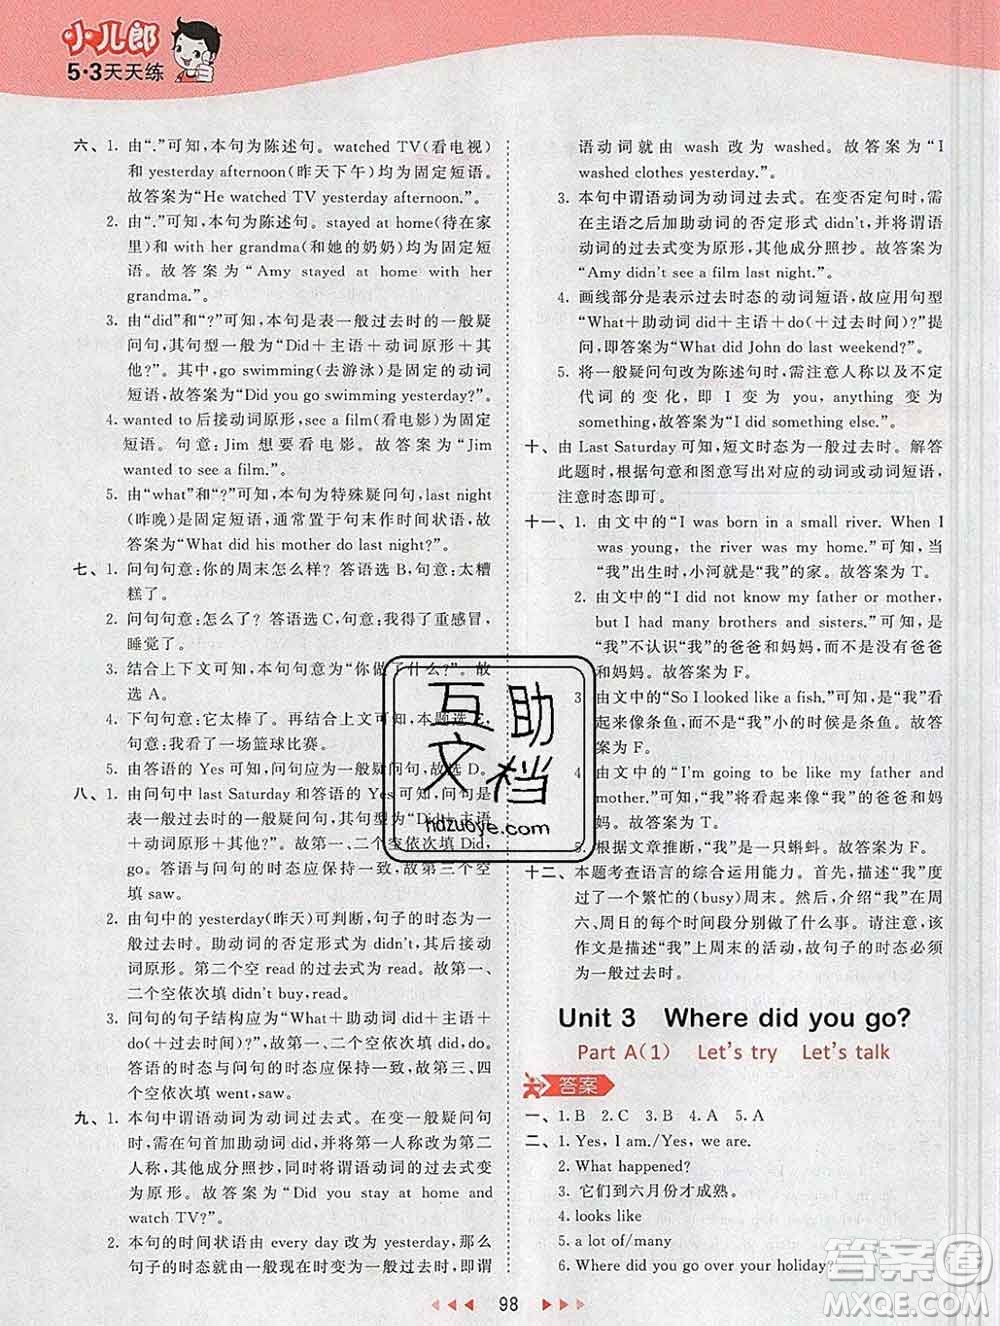 小儿郎
5·3天天练
六、1. 由“.”可知,本句为陈述句。watched TV(看电视)
和 yesterday afternoon(昨天下午)均为固定短语。
故答案为“He watched TV yesterday afternoon.”。
2. 由“.”可知,本句为陈述句。stayed at home(待在家
里)和 with her grandma(和她的奶奶)均为固定短
语。故答案为“Amy stayed at home with her
grandma.”。
3. 由“did”和“?”可知,本句是表一般过去时的一般疑
问句,其句型一般为“Did+主语+动词原形+其
他?”。其中,go swimming(去游泳)是固定的动词
短语,故答案为“Did you go swimming yesterday?”。
4. wanted to 后接动词原形,see a film(看电影)为固定
短语。句意:Jim 想要看电影。故答案为“Jim
wanted to see a film.”。
5. 由“what”和“?”可知,本句为特殊疑问句,last night
(昨晚)是固定短语,通常置于句末作时间状语,故
答案为“What did his mother do last night?”。
七、1. 问句句意:你的周末怎么样? 答语选 B,句意:太糟
糕了。
2. 问句句意:怎么了? 答语选 C,句意:我得了重感冒,
睡觉了。
3. 结合上下文可知,本句句意为“你做了什么?”。故
选 A。
4. 下句句意:它太棒了。再结合上文可知,本题选 E,
句意:我看了一场篮球比赛。
5. 由答语的 Yes 可知,问句应为一般疑问句,故选 D。
八、1. 由问句中 last Saturday 和答语的 Yes 可知,问句是
表一般过去时的一般疑问句,其句型为“Did+主语
+动词原形+其他?”。第一、二个空依次填 Did,
go。答语与问句的时态应保持一致。故第三个空
填 did。
2. 由句中的 yesterday(昨天)可判断,句子的时态为一
般过去时。助动词的否定形式为 didn't,其后接动
词原形。第二个空 read 的过去式为 read。故第一、
二个空依次填 didn't buy,read。
3. 问句的句子结构应为“What+助动词 did+主语+
do(+过去时间)?”。由此可知第一个空填 went。
答语的时态与问句的时态应保持一致。故第一、二
个空依次填 went,saw。
九、1. 本句中谓语动词为动词过去式。在变一般疑问句
时,需在句首加助动词 did,并将第一人称改为第二
人称,其他成分照抄,同时将谓语动词的过去式变
为原形。故答案为“Did you stay at home and
watch TV?”。
2. 本句的时间状语由 every day 改为 yesterday,那么
句子的时态就由一般现在时变为一般过去时,即谓
语动词就由 wash 改为 washed。故答案为“I
washed clothes yesterday.”。
3. 本句中谓语动词为动词过去式。在变否定句时,需
在主语之后加助动词的否定形式 didn't,并将谓语
动词的过去式变为原形,其他成分照抄。故答案为
“Amy didn't see a film last night.”。
4. 画线部分是表示过去时态的动词短语,故应用句型
“What+助动词 did+主语+do(+过去时间)?”提
问,即答案为“What did John do last weekend?”。
5. 将一般疑问句改为陈述句时,需注意人称以及不定
代词的变化,即 I 变为 you,anything 变为
something,故答案为“I did something else.”。
十、由 Last Saturday 可知,短文时态为一般过去时。解答
此题时,根据句意和图意写出对应的动词或动词短语,
注意时态即可。
十一、1. 由文中的“I was born in a small river. When I
was young, the river was my home.”可知,当
“我”出生时,小河就是“我”的家。故答案为 F。
2. 由文中的“I did not know my father or mother,
but I had many brothers and sisters.”可知,是
“我”不认识“我”的爸爸和妈妈,而不是有爸爸
和妈妈。故答案为 F。
3. 由文中的“So I looked like a fish.”可知,是“我”看
起来像条鱼,而不是“我”小的时候是条鱼。故答
案为 F。
4. 由文中的“I'm going to be like my father and
mother.”可知,“我”将看起来像“我”的爸爸和妈
妈。故答案为 T。
5. 根据文章推断,“我”是一只蝌蚪。故答案为 F。
十二、本题考查语言的综合运用能力。首先,描述“我”度
过了一个繁忙的(busy)周末。然后,介绍“我”在周
六、周日的每个时间段分别做了什么事。请注意,该
作文是描述“我”上周末的活动,故句子的时态必须
为一般过去时。
Unit 3 Where did you go?
Part A(1) Let's try Let's talk
答案
一、1. B 2. C 3. B 4. A 5. A
二、1. Yes, I am./Yes, we are.
2. What happened?
3. 它们到六月份才成熟。
4. looks like
5. a lot of/many
6. Where did you go over your holiday?
98
互助
文档
hdzuoye.com
答案圈
MXQE.COM